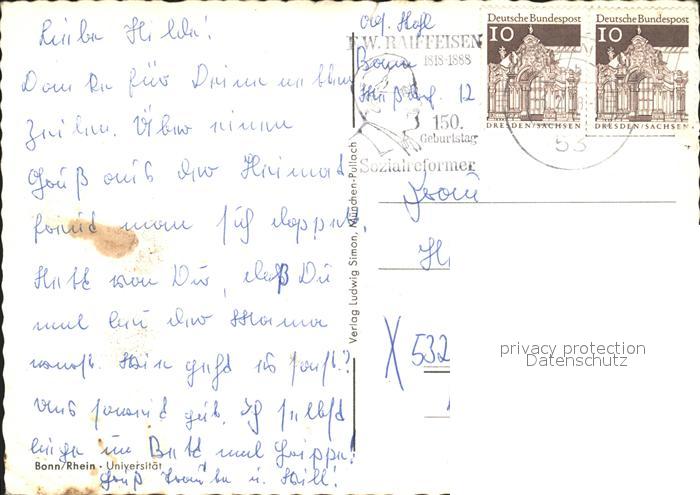 Liebe Hilde!
Danke für Deine netten
Zeilen. Über einen
Gruß aus der Heimat
freut man sich doppelt.
Nett von Dir, daß Du
mal bei der Mama
warst. Wie geht es sonst?
uns soweit gut. Ich selbst
liege im Bett mit Grippe!
Gruß u. Willi!
Bonn/Rhein · Universität
Verlag Ludwig Simon, München-Pullach
Bonn
12
F.W. RAIFFEISEN
1818-1888
150.
Geburtstag
Sozialreformer
Deutsche Bundespost
10
DRESDEN/SACHSEN
Deutsche Bundespost
10
DRESDEN/SACHSEN
53
Frau
H
X 532
privacy protection
Datenschutz